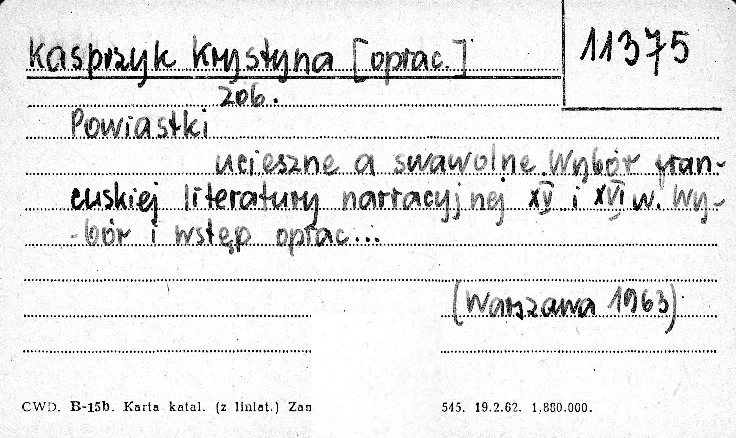 Kasprzyk Krystyna [oprac.]
11375
zob.
Powiastki
ucieszne a swawolne. Wybór fran-
cuskiej literatury narracyjnej XV i XVI w. Wy-
-bór i wstęp oprac...
(Warszawa 1963)
CWD. B-15b. Karta katal. (z liniat.) Zam
545. 19.2.62. 1.880.000.